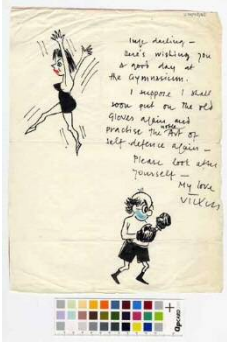 Inge darling –
Here's wishing you
a good day at
the Gymnasium.
I suppose I shall
soon put on the old
Gloves again and
practise the noble Art of
self defence again –
Please look after
yourself –
My love